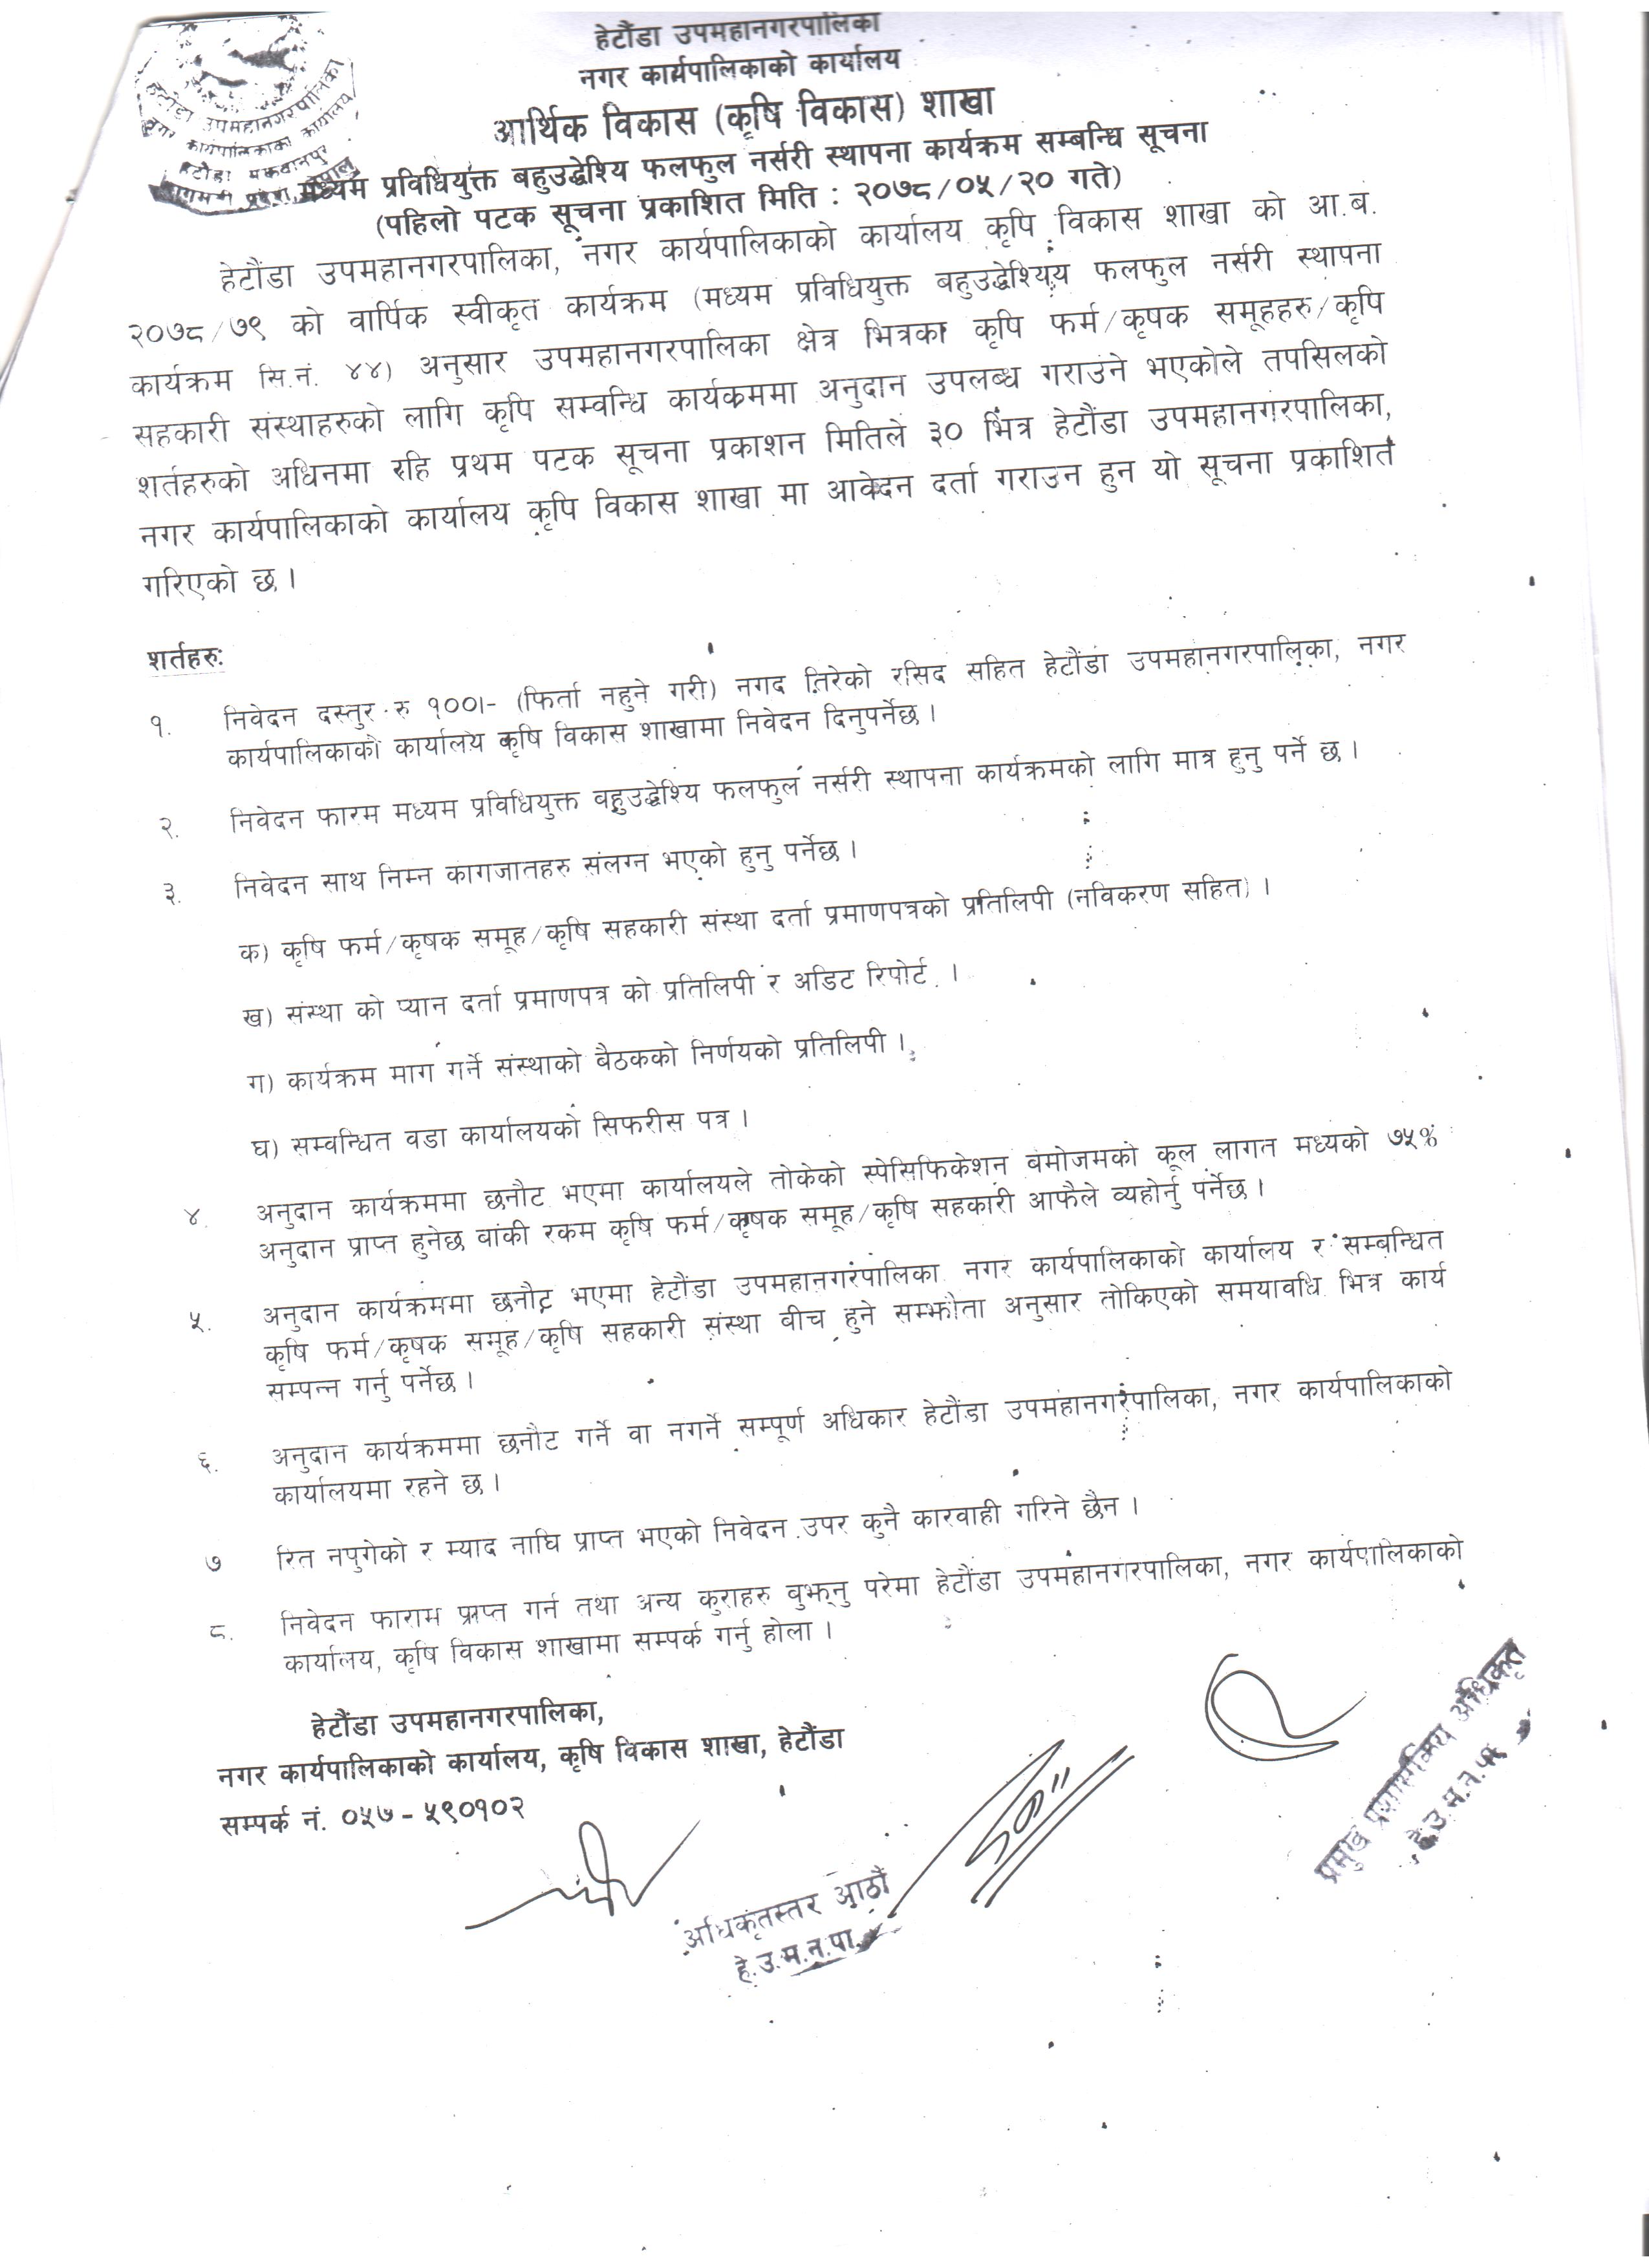 हेटौंडा उपमहानगरपालिका
नगर कार्यपालिकाको कार्यालय
आर्थिक विकास (कृषि विकास) शाखा
मध्यम प्रविधियुक्त बहुउद्धेश्यि फलफुल नर्सरी स्थापना कार्यक्रम सम्बन्धि सूचना
(पहिलो पटक सूचना प्रकाशित मिति : २०७८/०५/२० गते)
हेटौंडा उपमहानगरपालिका
नगर कार्यपालिकाको कार्यालय
हेटौंडा मकवानपुर
हेटौंडा उपमहानगरपालिका, नगर कार्यपालिकाको कार्यालय कृषि विकास शाखा को आ.ब.
२०७८/७९ को वार्षिक स्वीकृत कार्यक्रम (मध्यम प्रविधियुक्त बहुउद्धेश्यिय फलफुल नर्सरी स्थापना
कार्यक्रम सि.नं. ४४) अनुसार उपमहानगरपालिका क्षेत्र भित्रका कृषि फर्म/कृषक समूहहरु/कृषि
सहकारी संस्थाहरुको लागि कृषि सम्वन्धि कार्यक्रममा अनुदान उपलब्ध गराउने भएकोले तपसिलको
शर्तहरुको अधिनमा रहि प्रथम पटक सूचना प्रकाशन मितिले ३० भित्र हेटौंडा उपमहानगरपालिका,
नगर कार्यपालिकाको कार्यालय कृषि विकास शाखा मा आवेदन दर्ता गराउन हुन यो सूचना प्रकाशित
गरिएको छ ।
शर्तहरु:
१. निवेदन दस्तुर रु १००।- (फिर्ता नहुने गरी) नगद तिरेको रसिद सहित हेटौंडा उपमहानगरपालिका, नगर
कार्यपालिकाको कार्यालय कृषि विकास शाखामा निवेदन दिनुपर्नेछ ।
२. निवेदन फारम मध्यम प्रविधियुक्त वहुउद्धेश्यि फलफुल नर्सरी स्थापना कार्यक्रमको लागि मात्र हुनु पर्ने छ ।
३. निवेदन साथ निम्न कागजातहरु संलग्न भएको हुनु पर्नेछ ।
क) कृषि फर्म/कृषक समूह/कृषि सहकारी संस्था दर्ता प्रमाणपत्रको प्रतिलिपी (नविकरण सहित) ।
ख) संस्था को प्यान दर्ता प्रमाणपत्र को प्रतिलिपी र अडिट रिपोर्ट ।
ग) कार्यक्रम माग गर्ने संस्थाको बैठकको निर्णयको प्रतिलिपी ।
घ) सम्वन्धित वडा कार्यालयको सिफरीस पत्र ।
४. अनुदान कार्यक्रममा छनौट भएमा कार्यालयले तोकेको स्पेसिफिकेशन बमोजमको कूल लागत मध्यको ७५%
अनुदान प्राप्त हुनेछ वांकी रकम कृषि फर्म/कृषक समूह/कृषि सहकारी आफैले व्यहोर्नु पर्नेछ ।
५. अनुदान कार्यक्रममा छनौट भएमा हेटौंडा उपमहानगरपालिका नगर कार्यपालिकाको कार्यालय र सम्बन्धित
कृषि फर्म/कृषक समूह/कृषि सहकारी संस्था वीच हुने सम्झौता अनुसार तोकिएको समयावधि भित्र कार्य
सम्पन्न गर्नु पर्नेछ ।
६. अनुदान कार्यक्रममा छनौट गर्ने वा नगर्ने सम्पूर्ण अधिकार हेटौंडा उपमहानगरपालिका, नगर कार्यपालिकाको
कार्यालयमा रहने छ ।
७ रित नपुगेको र म्याद नाघि प्राप्त भएको निवेदन उपर कुनै कारवाही गरिने छैन ।
८. निवेदन फाराम प्राप्त गर्न तथा अन्य कुराहरु वुझ्नु परेमा हेटौंडा उपमहानगरपालिका, नगर कार्यपालिकाको
कार्यालय, कृषि विकास शाखामा सम्पर्क गर्नु होला ।
हेटौंडा उपमहानगरपालिका,
नगर कार्यपालिकाको कार्यालय, कृषि विकास शाखा, हेटौंडा
सम्पर्क नं. ०५७ - ५९०१०२
अधिकृतस्तर आठौं
हे.उ.म.न.पा.
प्रमुख प्रशासकिय अधिकृत
हे.उ.म.न.पा.